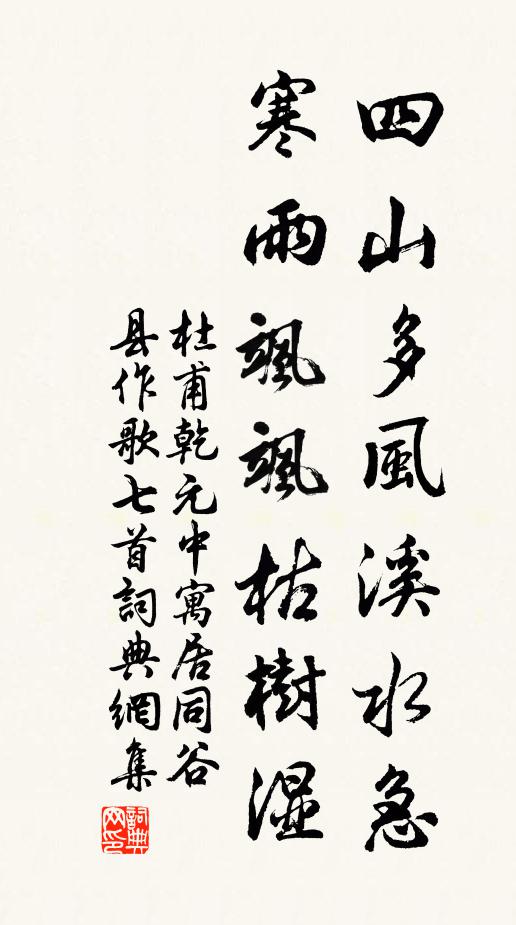 四山多風溪水急
寒雨颯颯枯樹湿
杜甫乾元中寓居同谷
县作歌七首詞典網集
詞典
网印